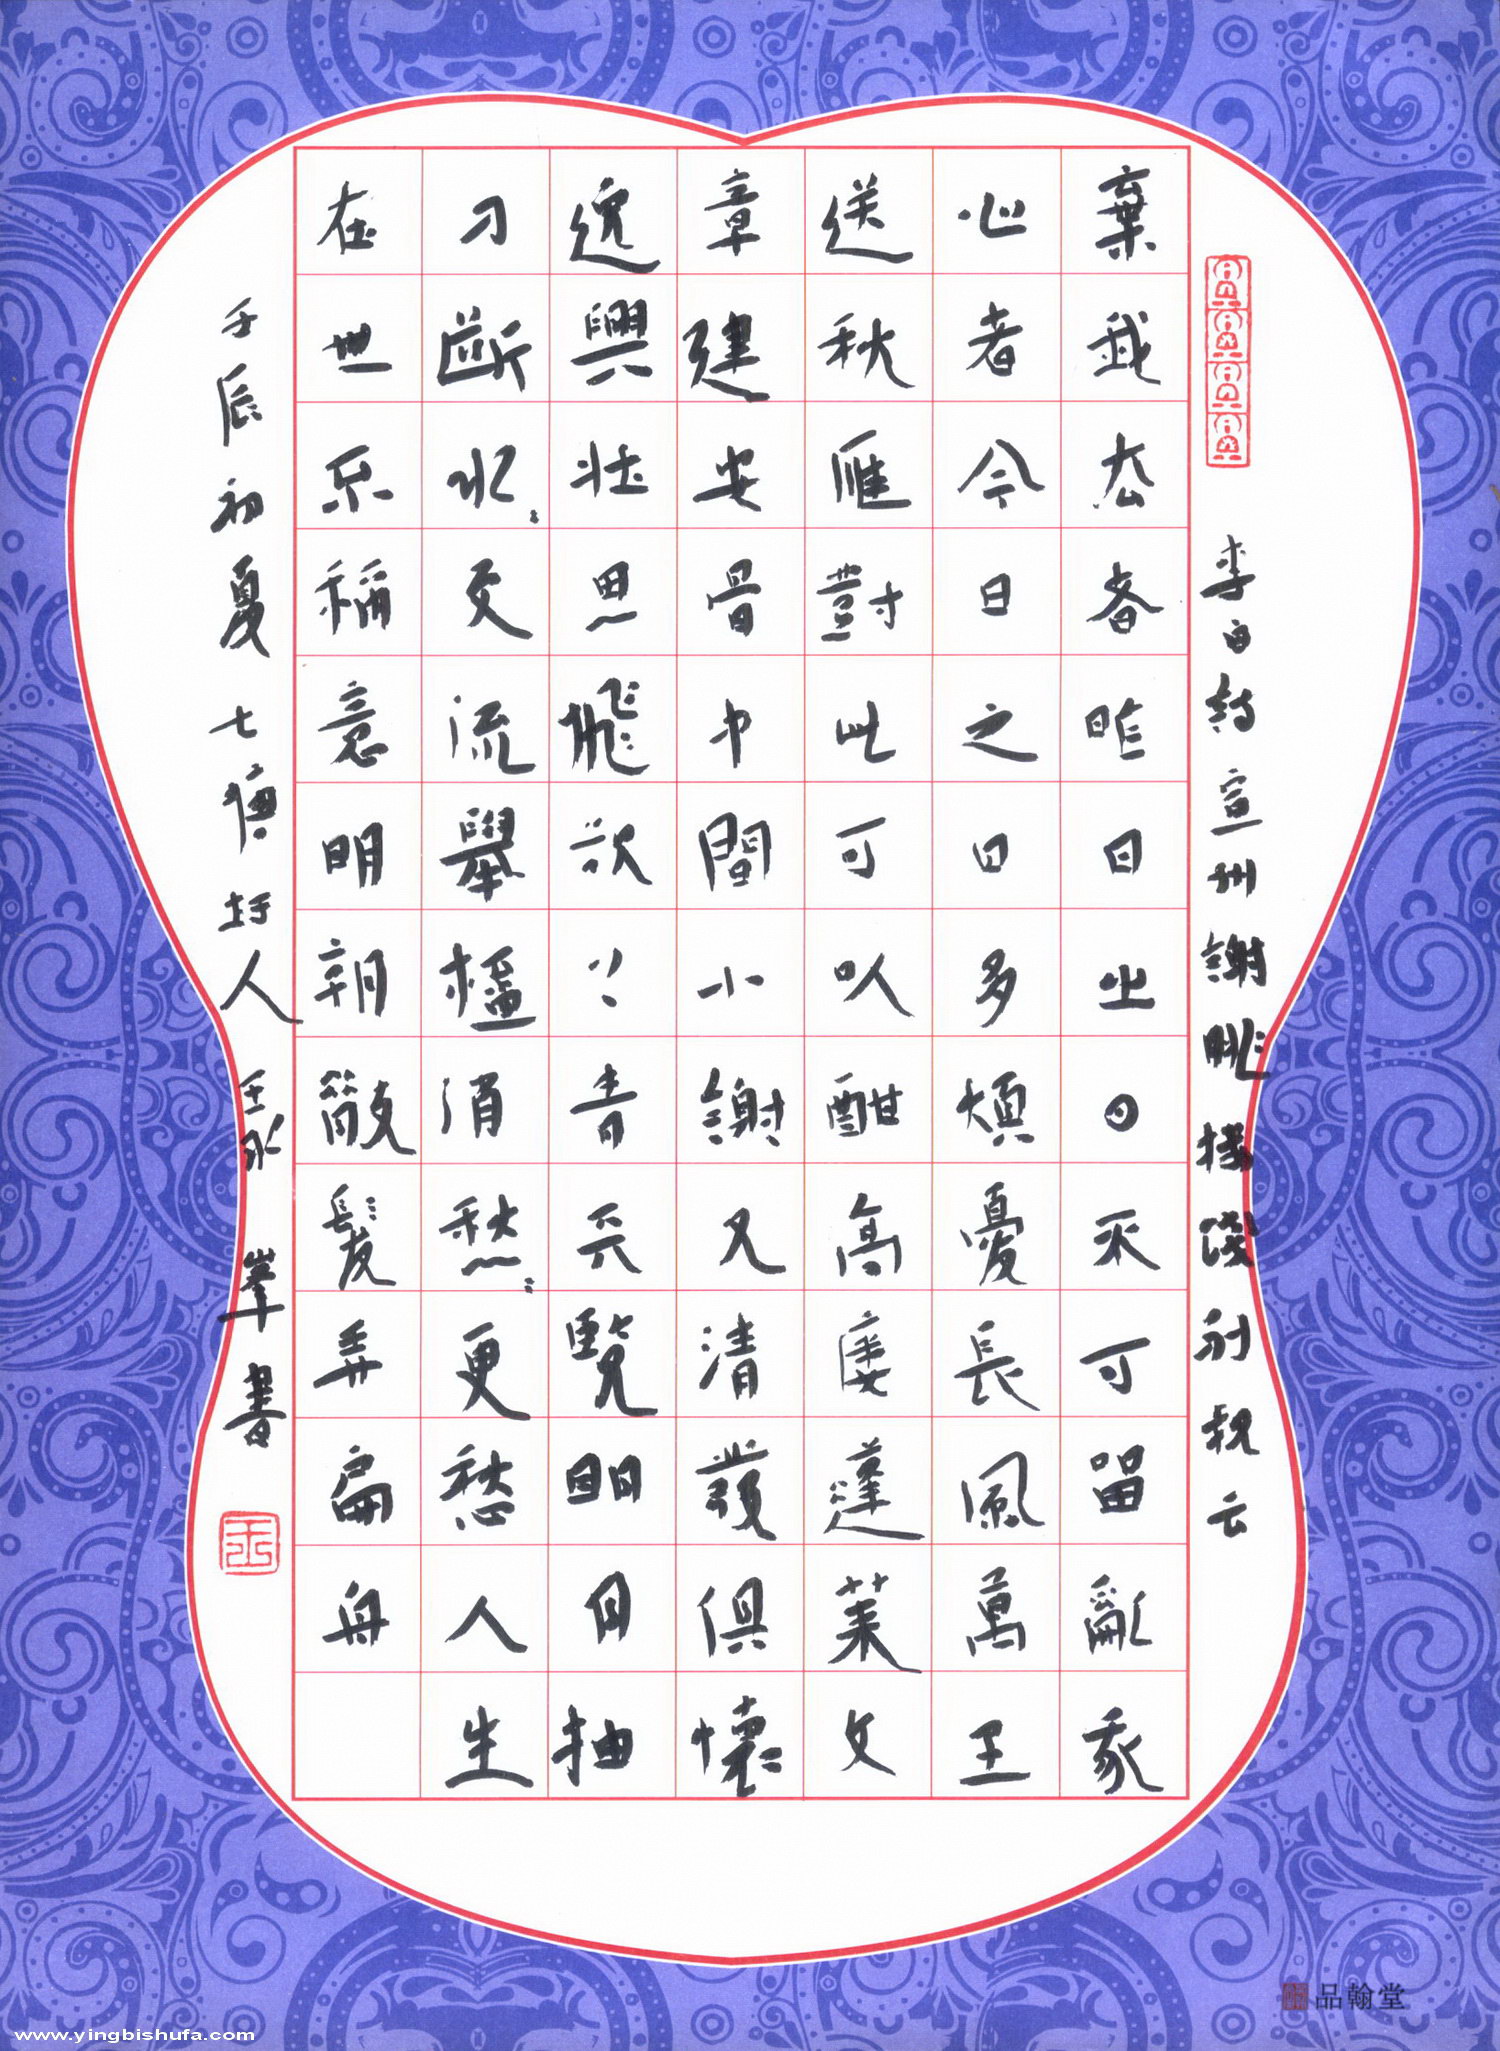 李白詩宣州謝眺樓餞別叔云
棄我去者昨日之日不可留亂我
心者今日之日多煩憂長風萬里
送秋雁對此可以酣高樓蓬萊文
章建安骨中間小謝又清發俱懷
逸興壯思飛欲上青天覽明月抽
刀斷水〻更流舉杯消愁〻更愁人生
在世不稱意明朝散髮弄扁舟
壬辰初夏七圩人王永峯書
品翰堂
www.yingbishufa.com